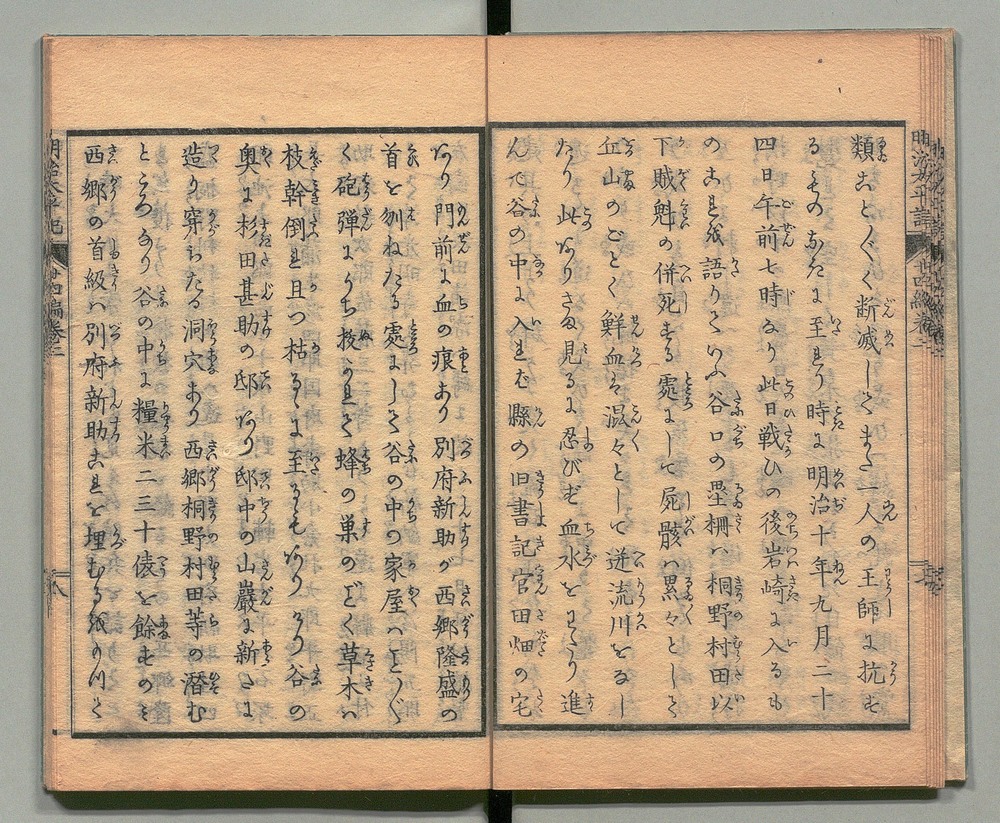 類ことごとく断滅してまた一人の王師に抗す
るものなきに至れり時に明治十年九月二十
四日午前七時なり此日戦ひの後岩崎に入るも
のこれを語りていふ谷口の塁柵ハ桐野村田以
下賊魁の併死する処にして屍骸ハ累々として
丘山のごとく鮮血ハ温々として迸流川をなし
たり此ありさま見るに忍びず血水をわたり進
んで谷の中に入れば縣の旧書記官田畑の宅
あり門前に血の痕あり別府新助が西郷隆盛の
首を刎ねたる處にして谷の中の家屋ハことごと
く砲弾にうち抜かれて蜂の巣のごとく草木ハ
枝幹倒れ且つ枯るに至るもありけり谷の
奥に杉田甚助の邸あり邸中の山巖に新たに
造り穿ちたる洞穴あり西郷桐野村田等の潜む
ところなり谷の中に糧米二三十俵を餘すのミ
西郷の首級ハ別府新助これを埋むるを以て
明治太平記
廿四編巻二
八